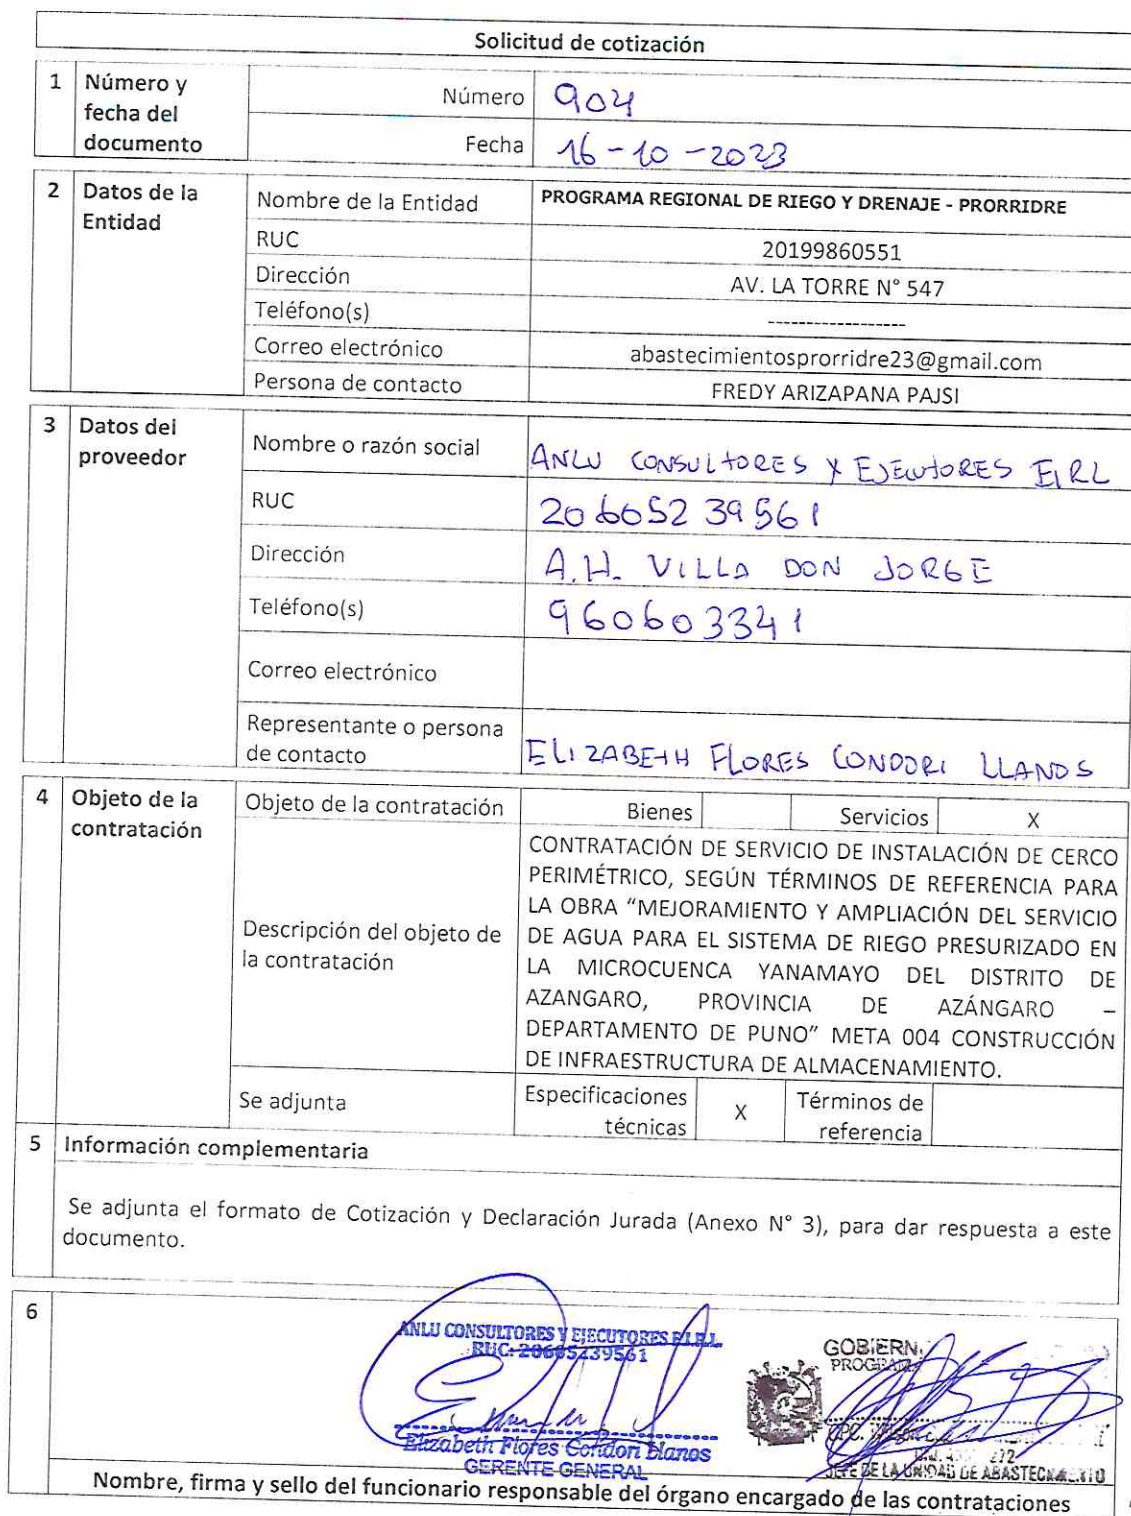 Solicitud de cotización
1 Número y fecha del documento
Número 904
Fecha 16-10-2023
2 Datos de la Entidad
Nombre de la Entidad PROGRAMA REGIONAL DE RIEGO Y DRENAJE - PRORRIDRE
RUC 20199860551
Dirección AV. LA TORRE N° 547
Teléfono(s) ------------------
Correo electrónico abastecimientosprorridre23@gmail.com
Persona de contacto FREDY ARIZAPANA PAJSI
3 Datos del proveedor
Nombre o razón social ANLU CONSULTORES Y EJECUTORES EIRL
RUC 20605239561
Dirección A.H. VILLA DON JORGE
Teléfono(s) 960603341
Correo electrónico
Representante o persona de contacto ELIZABETH FLORES CONDORI LLANOS
4 Objeto de la contratación
Objeto de la contratación Bienes Servicios X
Descripción del objeto de la contratación
CONTRATACIÓN DE SERVICIO DE INSTALACIÓN DE CERCO
PERIMÉTRICO, SEGÚN TÉRMINOS DE REFERENCIA PARA
LA OBRA “MEJORAMIENTO Y AMPLIACIÓN DEL SERVICIO
DE AGUA PARA EL SISTEMA DE RIEGO PRESURIZADO EN
LA MICROCUENCA YANAMAYO DEL DISTRITO DE
AZANGARO, PROVINCIA DE AZÁNGARO –
DEPARTAMENTO DE PUNO” META 004 CONSTRUCCIÓN
DE INFRAESTRUCTURA DE ALMACENAMIENTO.
Se adjunta Especificaciones técnicas X Términos de referencia
5 Información complementaria
Se adjunta el formato de Cotización y Declaración Jurada (Anexo N° 3), para dar respuesta a este
documento.
6
ANLU CONSULTORES Y EJECUTORES E.I.R.L.
RUC: 20605239561
Elizabeth Flores Condori Llanos
GERENTE GENERAL
GOBIERN
PROGRAMA
CPC.
JEFE DE LA UNIDAD DE ABASTECIMIENTO
Nombre, firma y sello del funcionario responsable del órgano encargado de las contrataciones